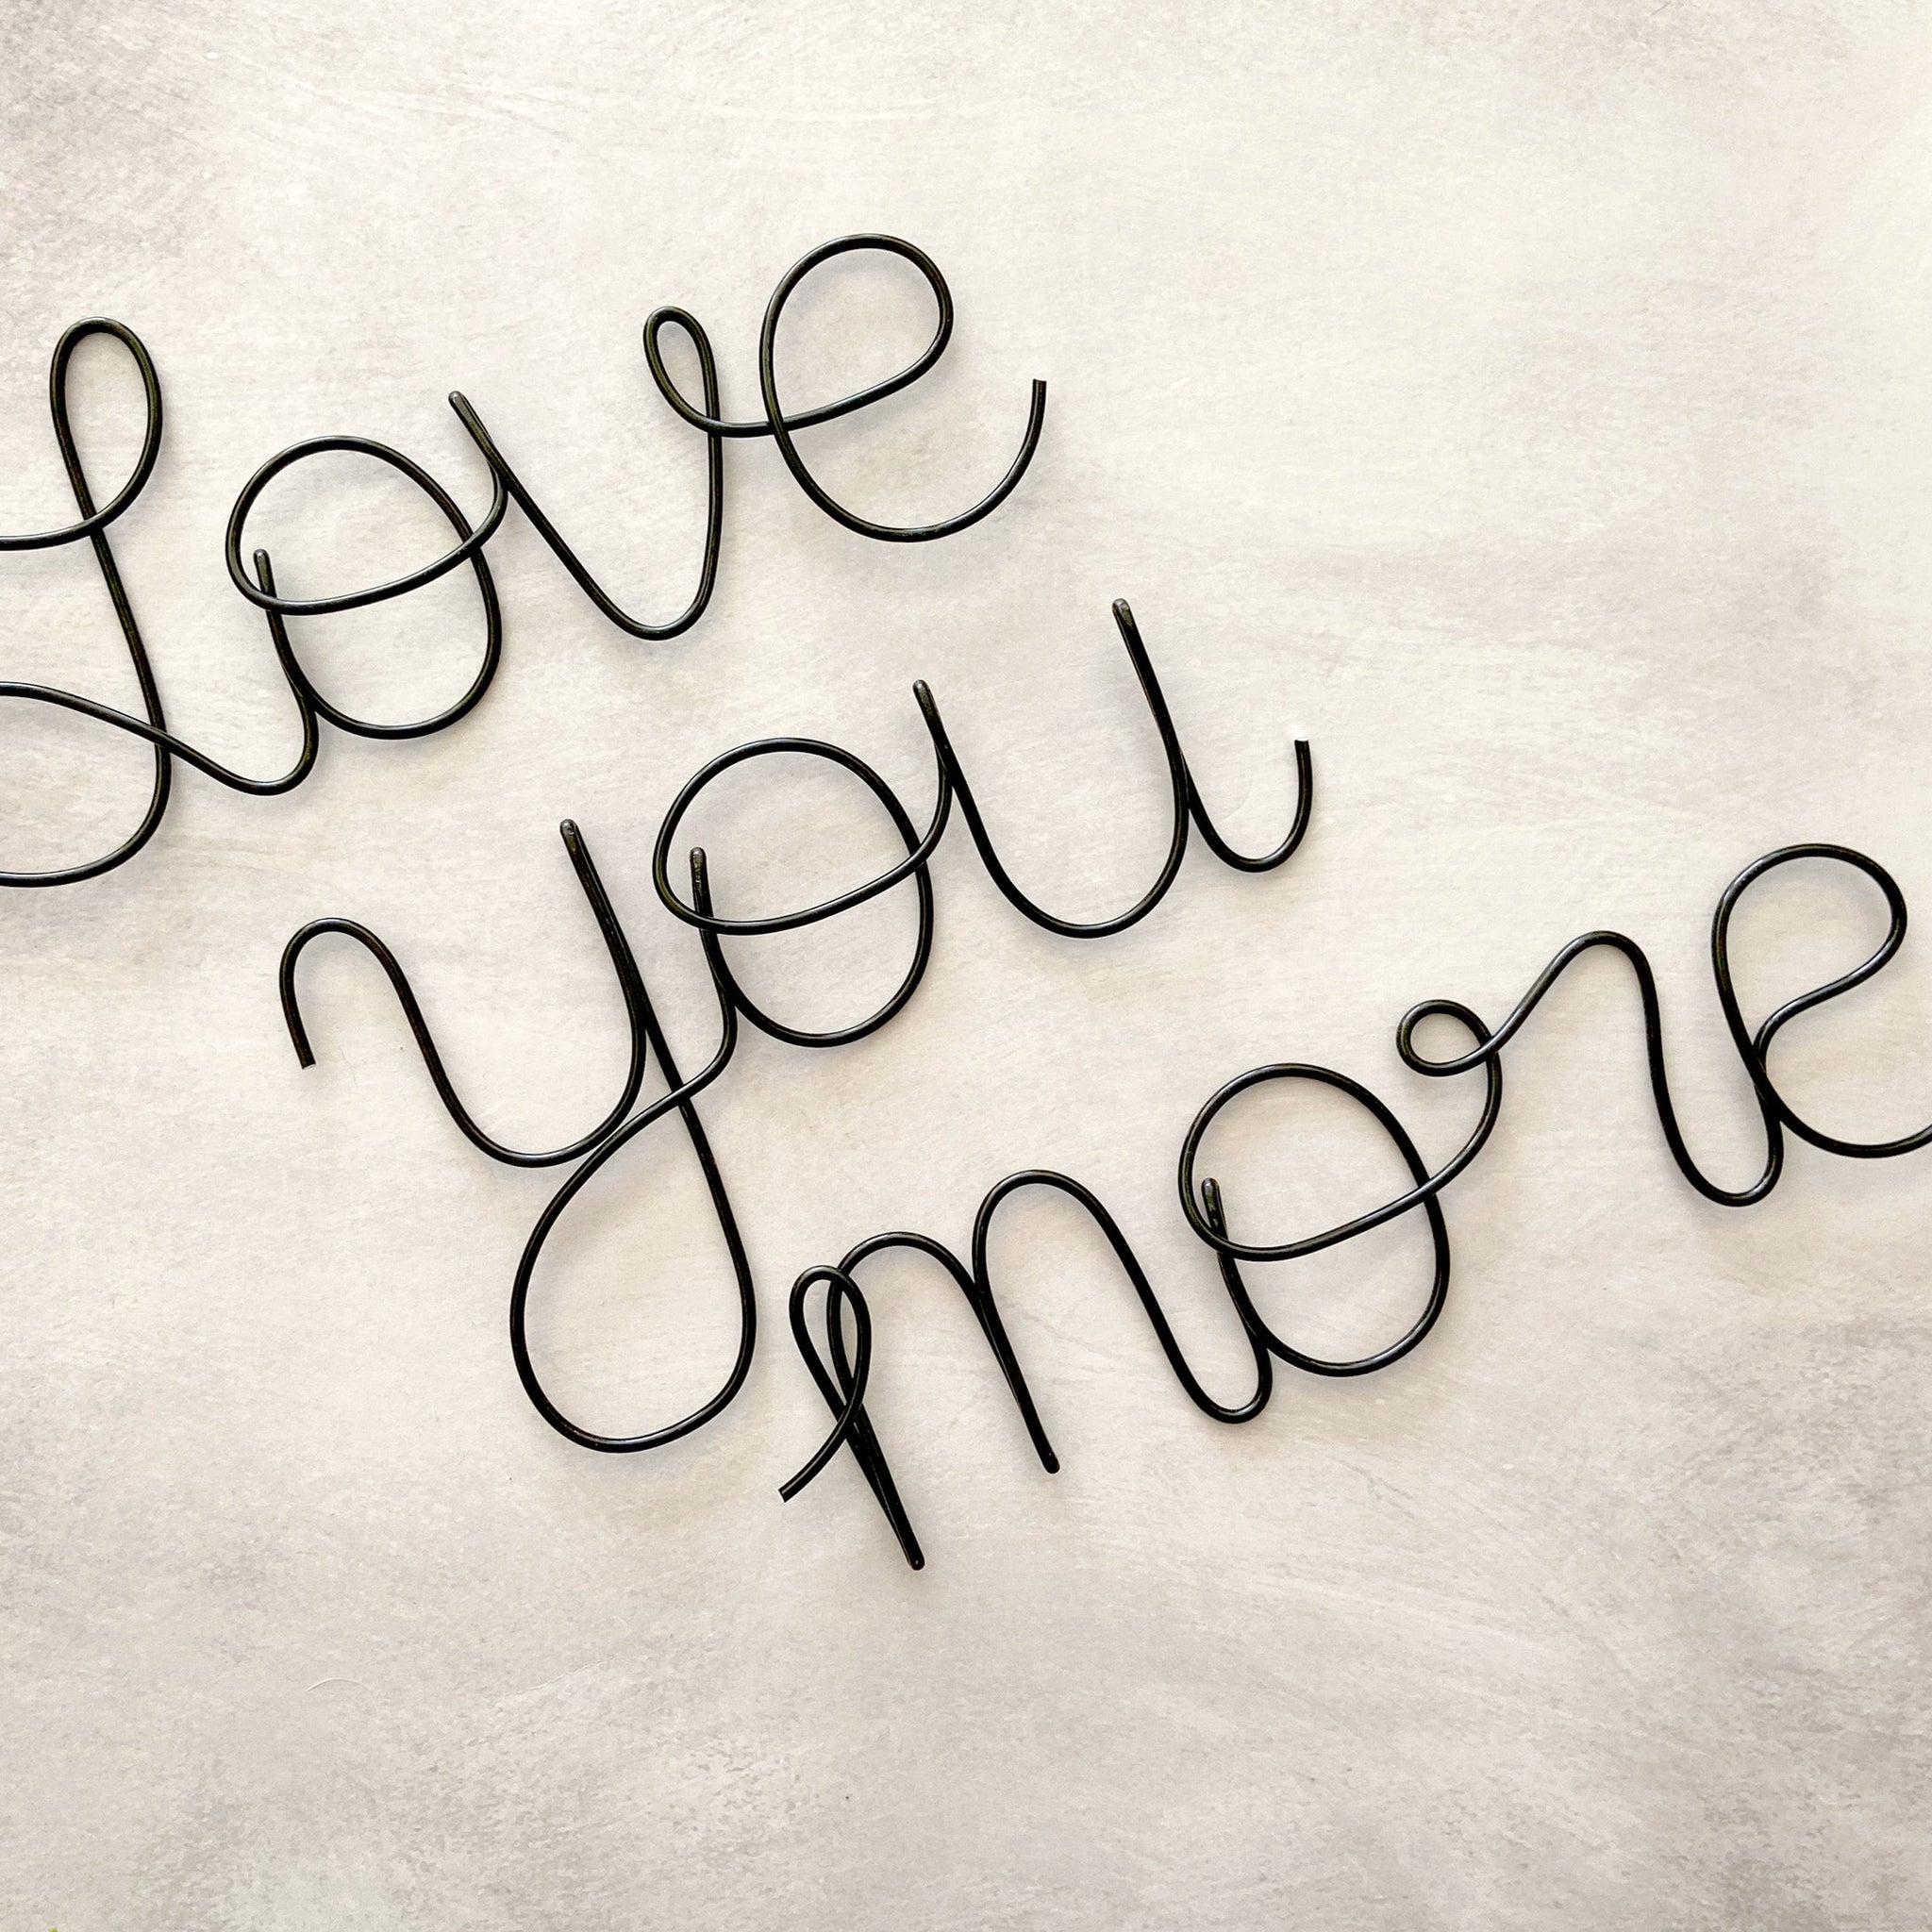 Love
you
more